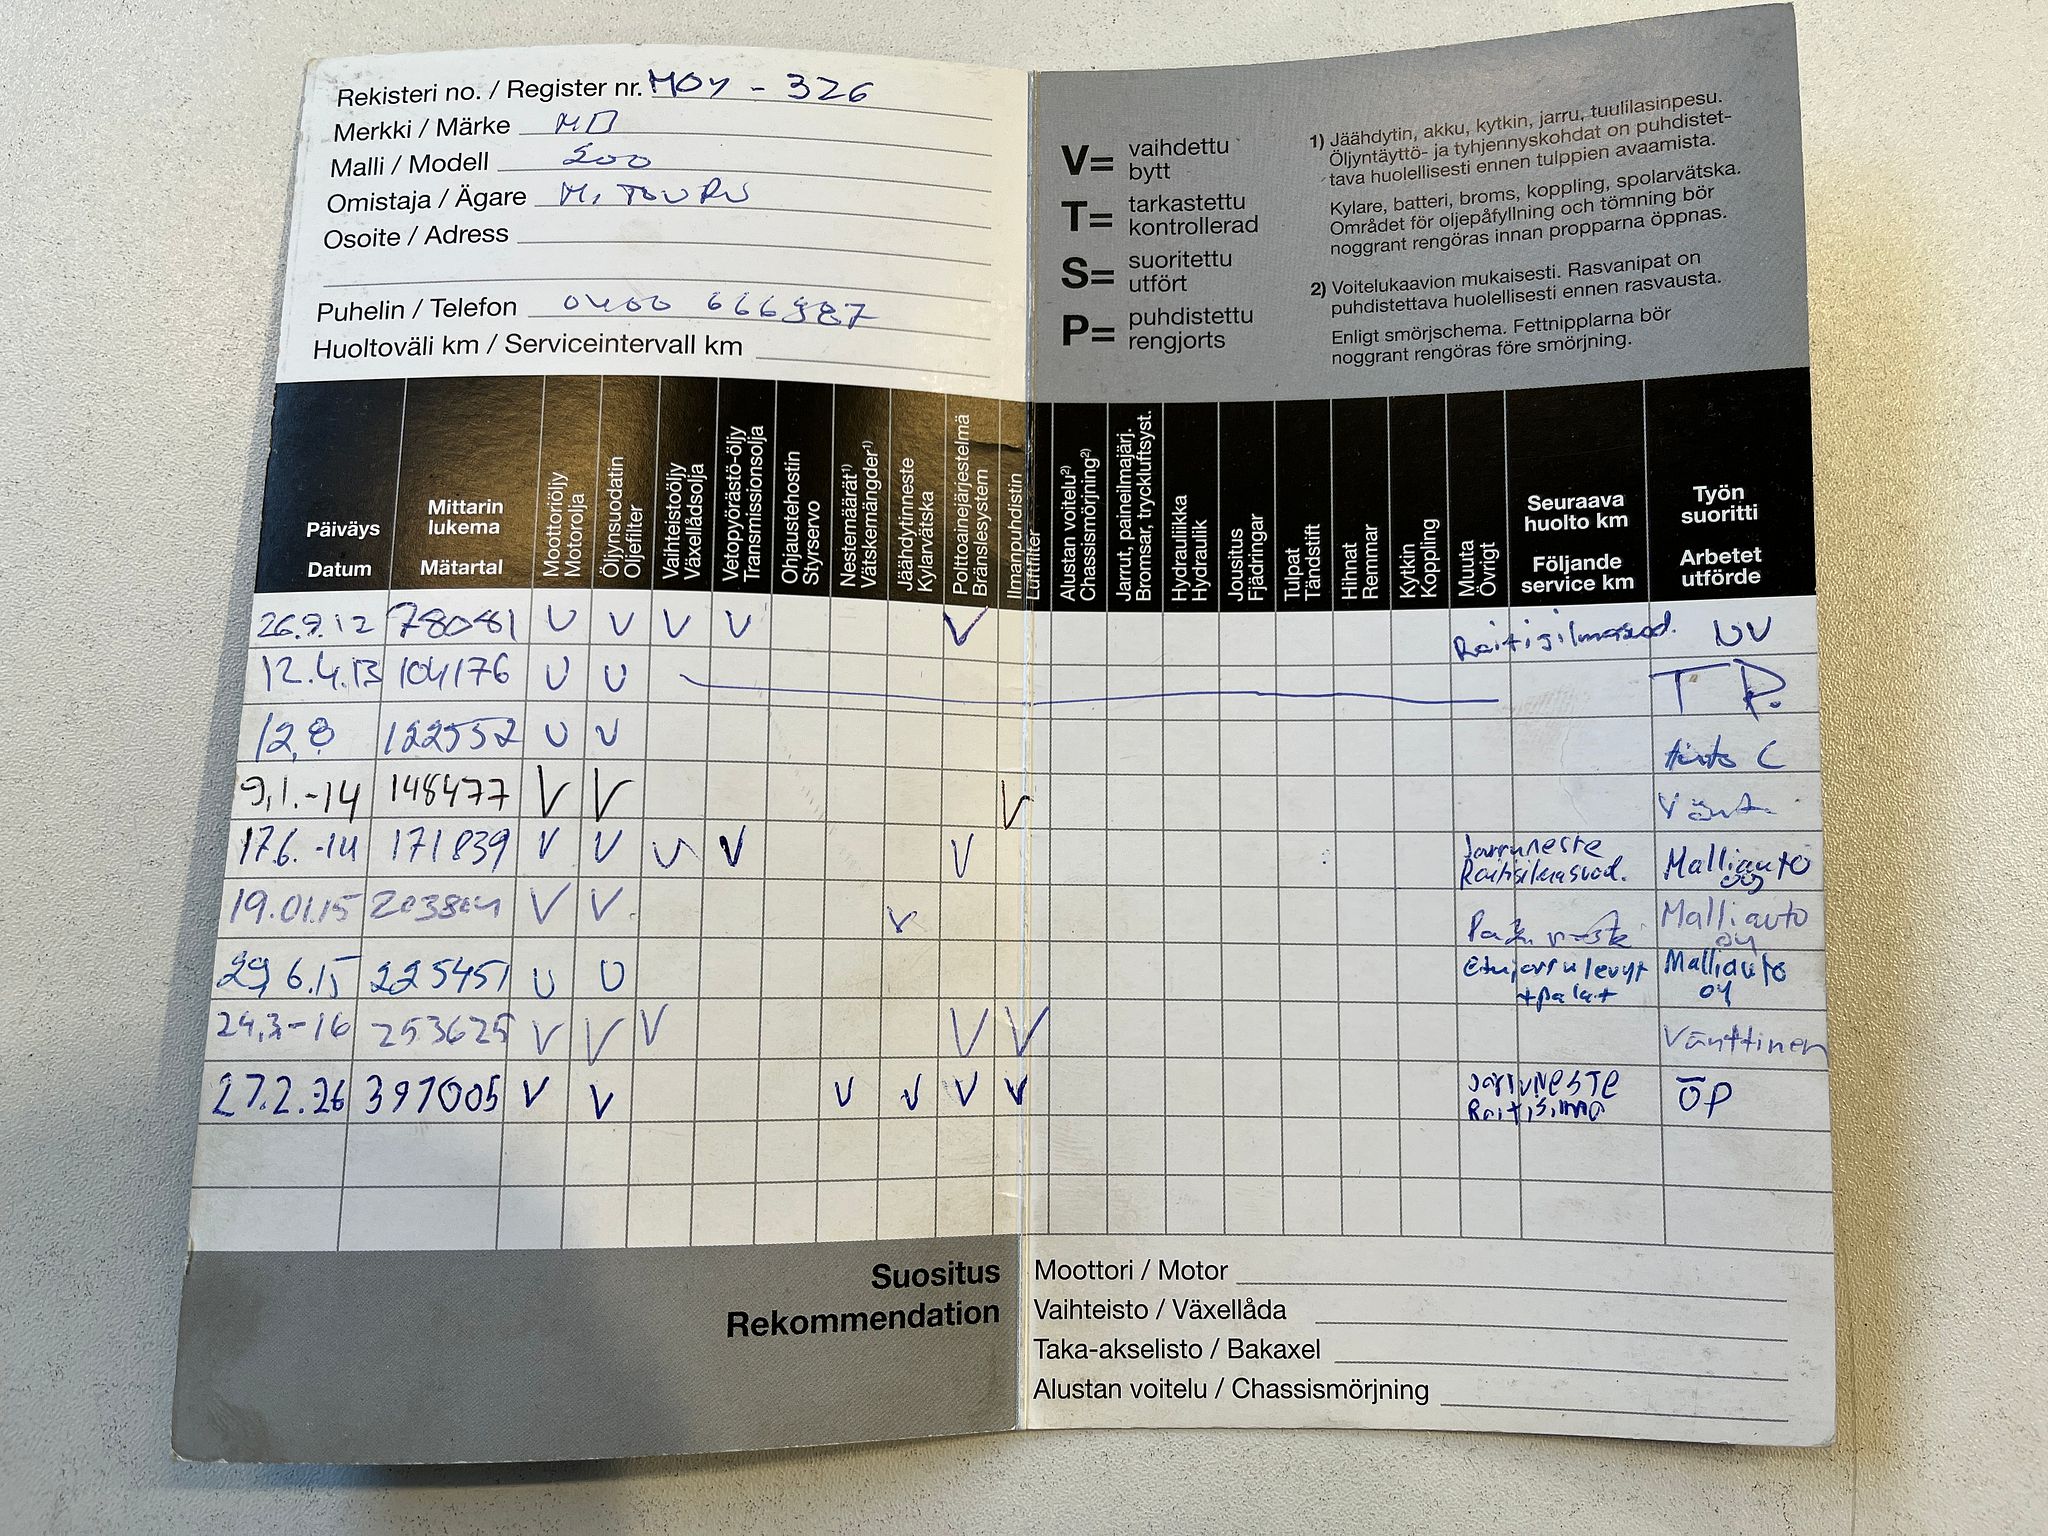 Rekisteri no. / Register nr. MOY - 326
Merkki / Märke MB
Malli / Modell 200
Omistaja / Ägare M. TOURU
Osoite / Adress
Puhelin / Telefon 0400 666987
Huoltoväli km / Serviceintervall km
V= vaihdettu
bytt
T= tarkastettu
kontrollerad
S= suoritettu
utfört
P= puhdistettu
rengjorts
1) Jäähdytin, akku, kytkin, jarru, tuulilasinpesu.
Öljyntäyttö- ja tyhjennyskohdat on puhdistet-
tava huolellisesti ennen tulppien avaamista.
Kylare, batteri, broms, koppling, spolarvätska.
Området för oljepåfyllning och tömning bör
noggrant rengöras innan propparna öppnas.
2) Voitelukaavion mukaisesti. Rasvanipat on
puhdistettava huolellisesti ennen rasvausta.
Enligt smörjschema. Fettnipplarna bör
noggrant rengöras före smörjning.
Päiväys
Datum
Mittarin
lukema
Mätartal
Moottoriöljy
Motorolja
Öljynsuodatin
Oljefilter
Vaihteistoöljy
Växellådsolja
Vetopyörästö-öljy
Transmissionsolja
Ohjaustehostin
Styrservo
Nestemäärät1)
Vätskemängder1)
Jäähdytinneste
Kylarvätska
Polttoainejärjestelmä
Bränslesystem
Ilmanpuhdistin
Luftfilter
Alustan voitelu2)
Chassismörjning2)
Jarrut, paineilmajärj.
Bromsar, tryckluftsyst.
Hydrauliikka
Hydraulik
Jousitus
Fjädringar
Tulpat
Tändstift
Hihnat
Remmar
Kytkin
Koppling
Muuta
Övrigt
Seuraava
huolto km
Följande
service km
Työn
suoritti
Arbetet
utförde
26.9.12 78081 V V V V V Raitisilmasuod. UV
12.4.13 104176 V V TP.
12,8 122552 V V Auto C
9.1.-14 148477 V V V
17.6.-14 171839 V V V V V Jarruneste
Raitisilmasuod. Malliauto
oy
19.01.15 V V V Malliauto
oy
29.6.15 225451 V V Etujarrulevyt
+palat Malliauto
oy
24.3-16 253625 V V V V V Vänttinen
27.2.26 397005 V V V V V V Jarruneste
Raitisilma ÖP
Suositus
Rekommendation
Moottori / Motor
Vaihteisto / Växellåda
Taka-akselisto / Bakaxel
Alustan voitelu / Chassismörjning